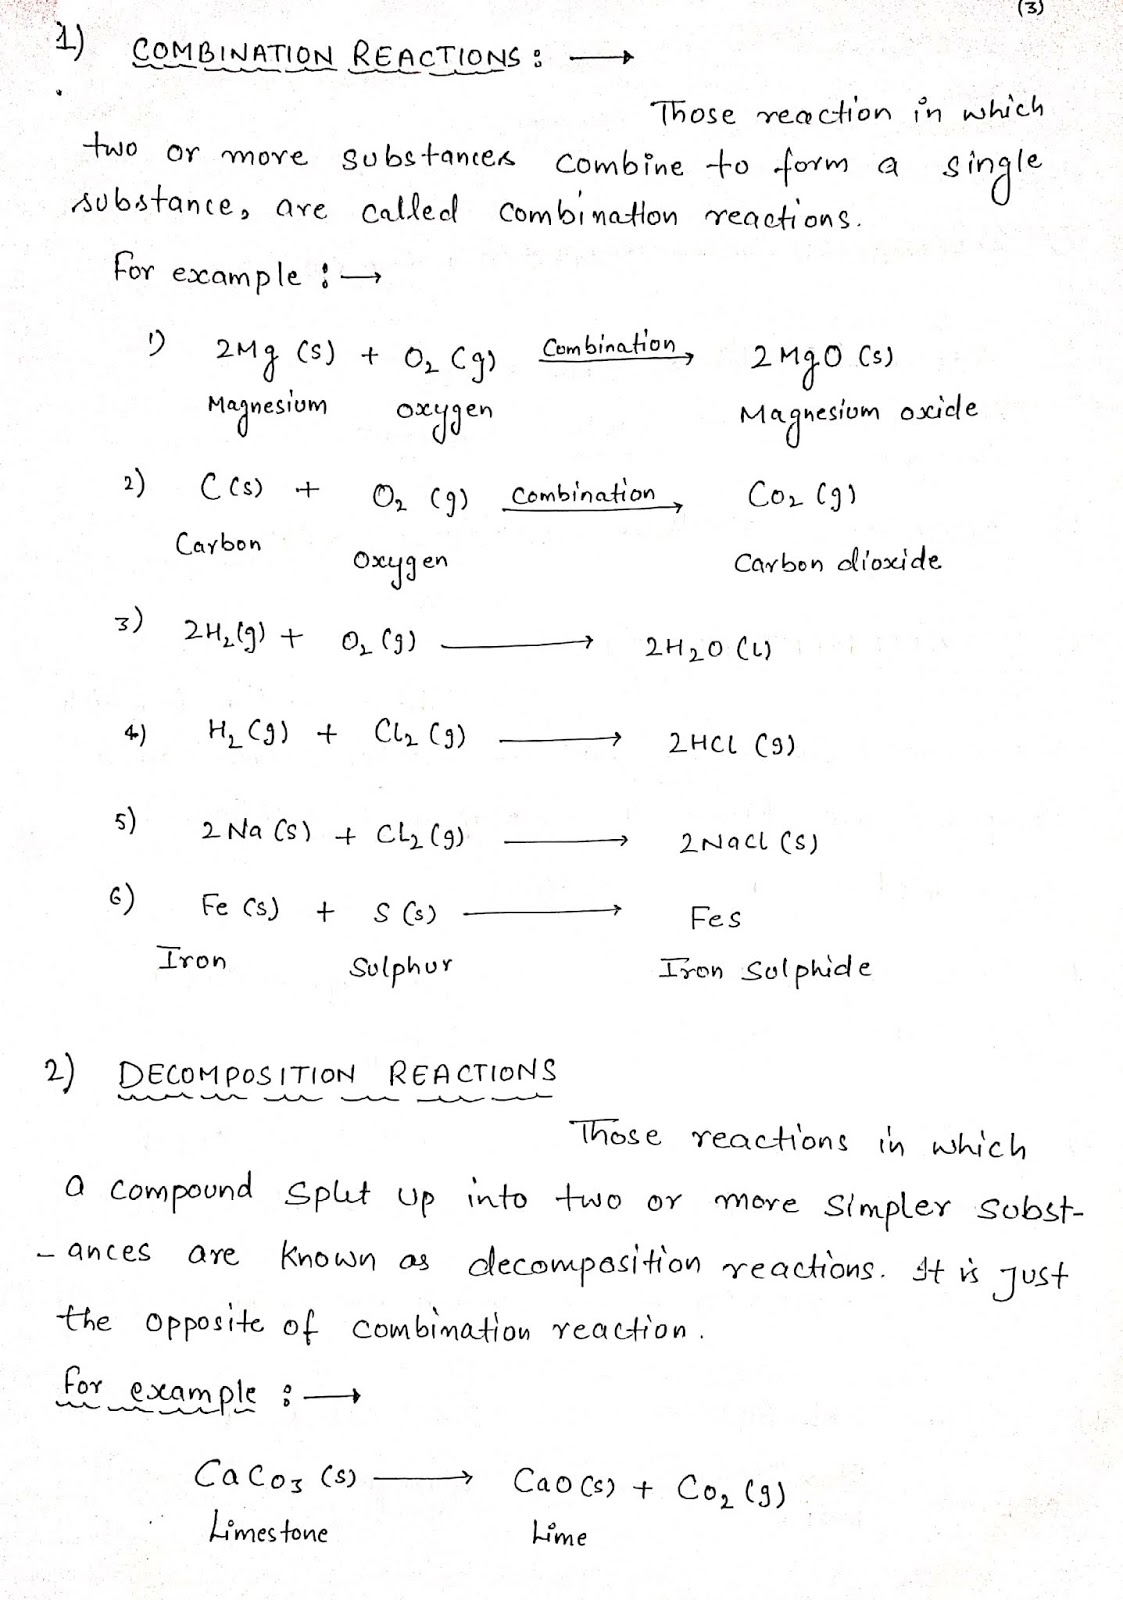 (3)
1) COMBINATION REACTIONS : ⟶
Those reaction in which
two or more substances combine to form a single
substance, are called combination reactions.
For example : ⟶
1) 2Mg (s) + O₂ (g) Combination⟶ 2MgO (s)
Magnesium oxygen Magnesium oxide
2) C (s) + O₂ (g) Combination⟶ CO₂ (g)
Carbon Oxygen Carbon dioxide
3) 2H₂(g) + O₂ (g) ⟶ 2H₂O (l)
4) H₂ (g) + Cl₂ (g) ⟶ 2HCl (g)
5) 2Na (s) + Cl₂ (g) ⟶ 2NaCl (s)
6) Fe (s) + S (s) ⟶ Fes
Iron Sulphur Iron Sulphide
2) DECOMPOSITION REACTIONS
Those reactions in which
a compound split up into two or more simpler subst-
-ances are known as decomposition reactions. It is just
the opposite of combination reaction.
For example : ⟶
CaCO₃ (s) ⟶ CaO (s) + CO₂ (g)
Limestone Lime